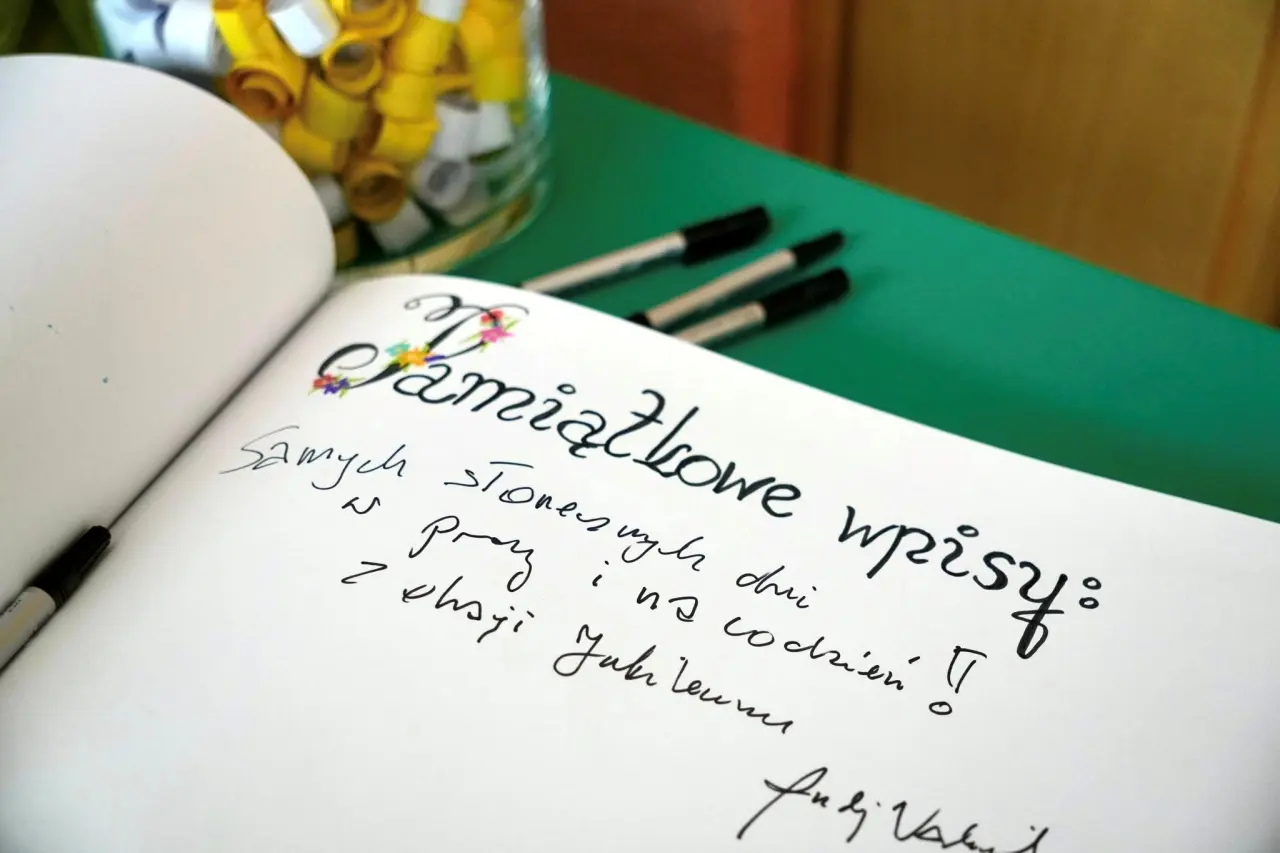 Pamiątkowe wpisy:
Samych słonecznych dni
w pracy i na codzień!
z okazji Jubileuszu